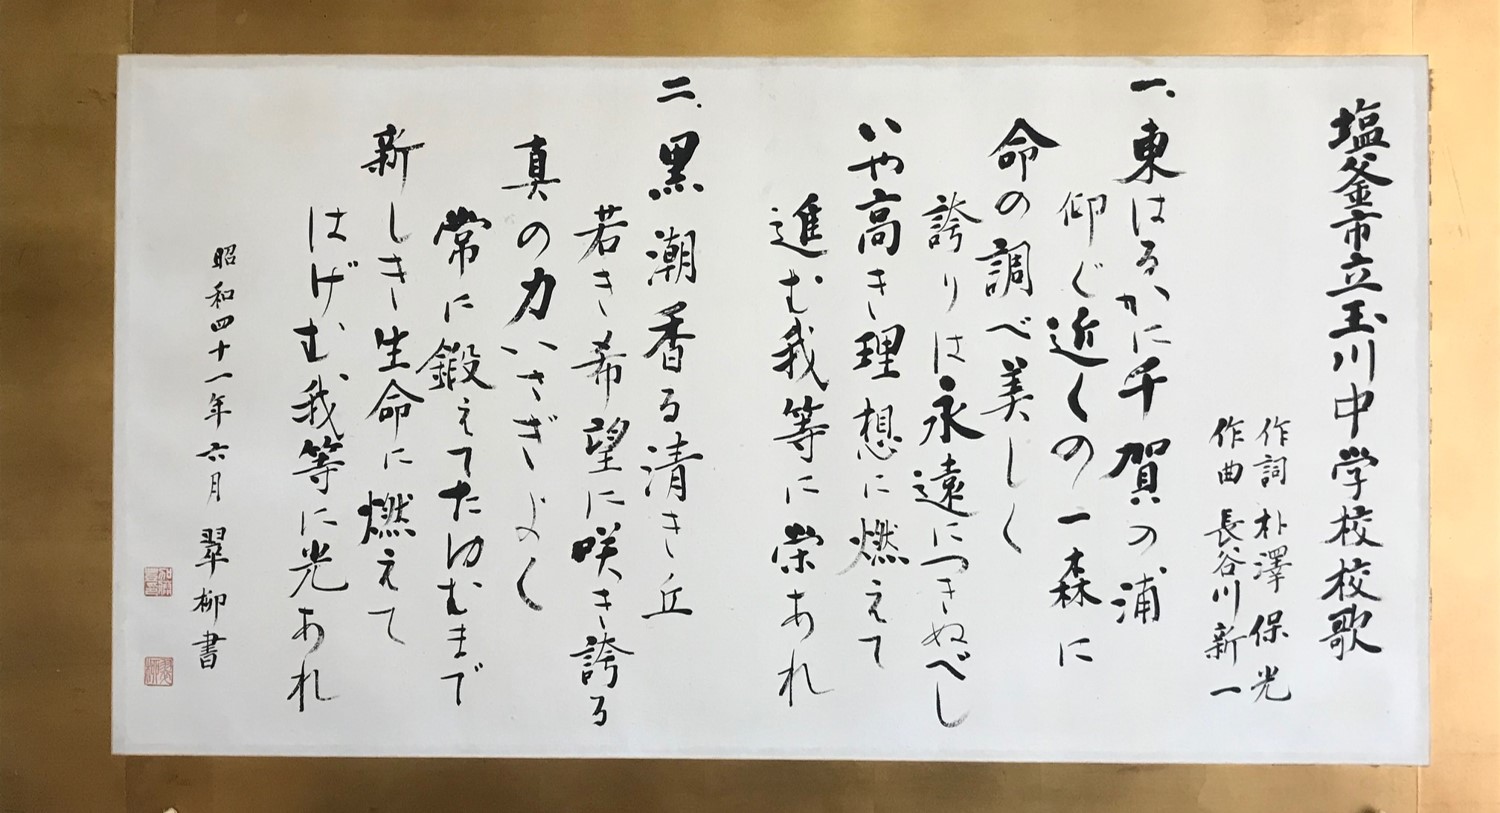 塩釜市立玉川中学校校歌
作詞 朴澤保光
作曲 長谷川新一
一、東はるかに千賀の浦
仰ぐ近くの一森に
命の調べ美しく
誇りは永遠につきぬべし
いや高き理想に燃えて
進む我等に栄あれ
二、黒潮香る清き丘
若き希望に咲き誇る
真の力いさぎよく
常に鍛えてたゆむまで
新しき生命に燃えて
はげむ我等に光あれ
昭和四十一年六月 翠柳書